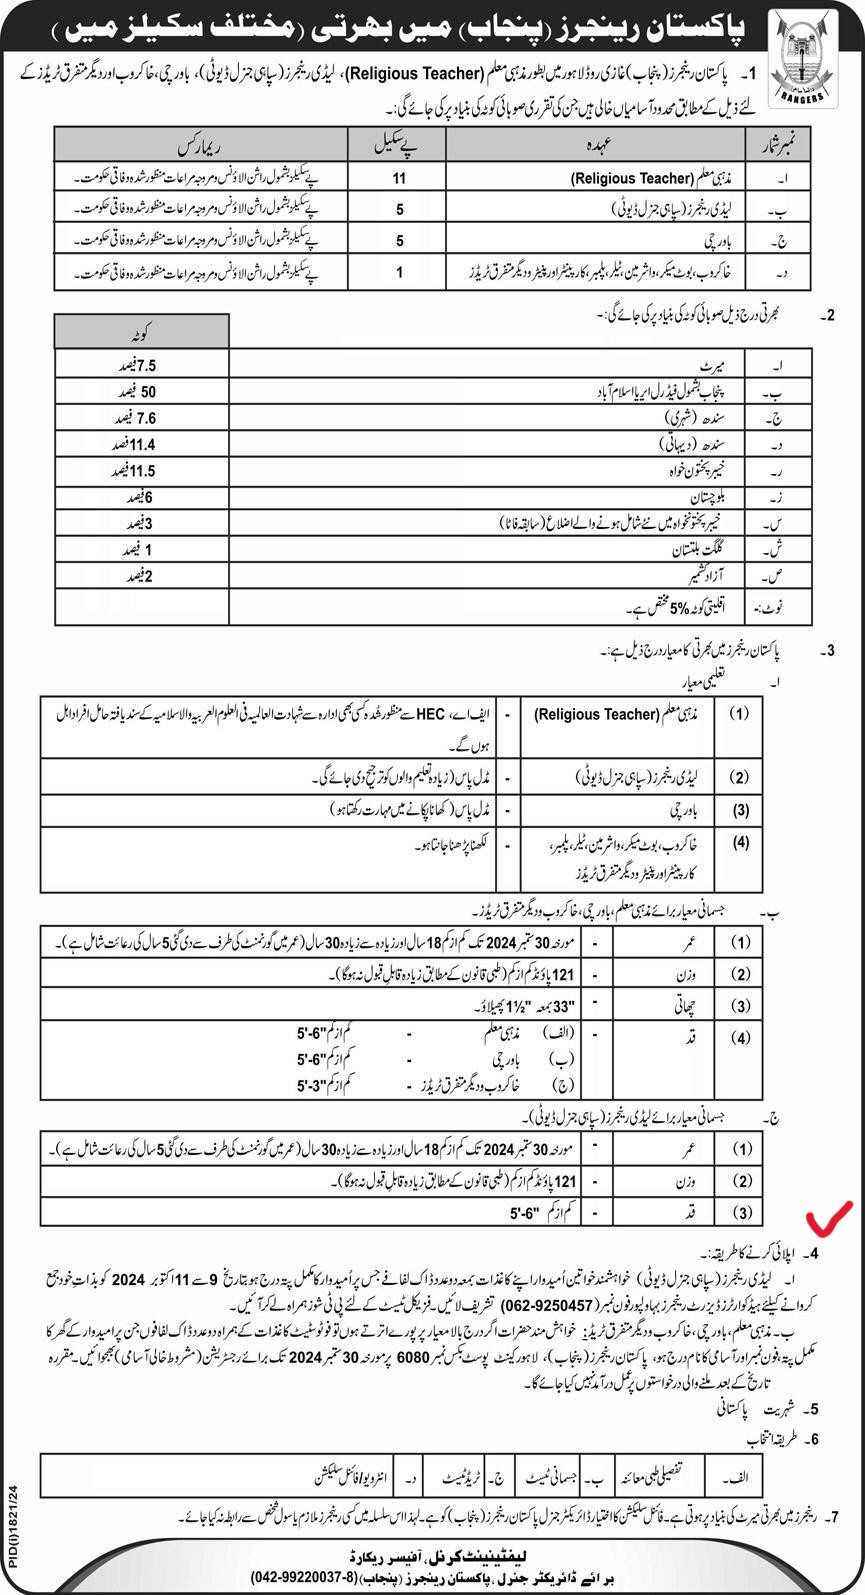 پاکستان رینجرز (پنجاب) میں بھرتی (مختلف سکیلز میں)
RANGERS
1۔ پاکستان رینجرز (پنجاب) غازی روڈ لاہور میں بطور مذہبی معلم (Religious Teacher)، لیڈی رینجرز (سپاہی جنرل ڈیوٹی)، باورچی، خاکروب اور دیگر متفرق ٹریڈز کے
لئے ذیل کے مطابق محدود آسامیاں خالی ہیں جن کی تقرری صوبائی کوٹہ کی بنیاد پر کی جائے گی:۔
نمبر شمار عہدہ پے سکیل ریمارکس
ا۔ مذہبی معلم (Religious Teacher) 11 پے سکیلز بشمول راشن الاؤنس و مروجہ مراعات منظور شدہ وفاقی حکومت۔
ب۔ لیڈی رینجرز (سپاہی جنرل ڈیوٹی) 5 پے سکیلز بشمول راشن الاؤنس و مروجہ مراعات منظور شدہ وفاقی حکومت۔
ج۔ باورچی 5 پے سکیلز بشمول راشن الاؤنس و مروجہ مراعات منظور شدہ وفاقی حکومت۔
د۔ خاکروب، بوٹ میکر، واشر مین، ٹیلر، پلمبر، کارپینٹر اور پینٹر و دیگر متفرق ٹریڈز 1 پے سکیلز بشمول راشن الاؤنس و مروجہ مراعات منظور شدہ وفاقی حکومت۔
2۔ بھرتی درج ذیل صوبائی کوٹہ کی بنیاد پر کی جائے گی:۔
کوٹہ
ا۔ میرٹ 7.5 فیصد
ب۔ پنجاب بشمول فیڈرل ایریا اسلام آباد 50 فیصد
ج۔ سندھ (شہری) 7.6 فیصد
د۔ سندھ (دیہاتی) 11.4 فیصد
ر۔ خیبر پختون خواہ 11.5 فیصد
ز۔ بلوچستان 6 فیصد
س۔ خیبر پختونخواہ میں نئے شامل ہونے والے اضلاع (سابقہ فاٹا) 3 فیصد
ش۔ گلگت بلتستان 1 فیصد
ص۔ آزاد کشمیر 2 فیصد
نوٹ:- اقلیتی کوٹہ 5% مختص ہے۔
3۔ پاکستان رینجرز میں بھرتی کا معیار درج ذیل ہے:۔
ا۔ تعلیمی معیار
(1) مذہبی معلم (Religious Teacher) - ایف اے، HEC سے منظور شدہ کسی بھی ادارہ سے شہادت العالمیہ فی العلوم العربیہ والاسلامیہ کے سند یافتہ حامل افراد اہل
ہوں گے۔
(2) لیڈی رینجرز (سپاہی جنرل ڈیوٹی) - مڈل پاس (زیادہ تعلیم والوں کو ترجیح دی جائے گی۔
(3) باورچی - مڈل پاس (کھانا پکانے میں مہارت رکھتا ہو)
(4) خاکروب، بوٹ میکر، واشر مین، ٹیلر، پلمبر، - لکھنا پڑھنا جانتا ہو۔
کارپینٹر اور پینٹر و دیگر متفرق ٹریڈز
ب۔ جسمانی معیار برائے مذہبی معلم، باورچی، خاکروب و دیگر متفرق ٹریڈز۔
(1) عمر - مورخہ 30 ستمبر 2024 تک کم از کم 18 سال اور زیادہ سے زیادہ 30 سال (عمر میں گورنمنٹ کی طرف سے دی گئی 5 سال کی رعائت شامل ہے)۔
(2) وزن - 121 پاؤنڈ کم از کم (طبی قانون کے مطابق زیادہ قابل قبول نہ ہوگا)۔
(3) چھاتی - "33 بمعہ "1½ پھیلاؤ۔
(4) قد - (الف) مذہبی معلم - کم از کم 5'-6"
(ب) باورچی - کم از کم 5'-6"
(ج) خاکروب و دیگر متفرق ٹریڈز - کم از کم 5'-3"
ج۔ جسمانی معیار برائے لیڈی رینجرز (سپاہی جنرل ڈیوٹی)۔
(1) عمر - مورخہ 30 ستمبر 2024 تک کم از کم 18 سال اور زیادہ سے زیادہ 30 سال (عمر میں گورنمنٹ کی طرف سے دی گئی 5 سال کی رعائت شامل ہے)۔
(2) وزن - 121 پاؤنڈ کم از کم (طبی قانون کے مطابق زیادہ قابل قبول نہ ہوگا)۔
(3) قد - کم از کم 5'-6"
4۔ اپلائی کرنے کا طریقہ:۔
ا۔ لیڈی رینجرز (سپاہی جنرل ڈیوٹی) خواہشمند خواتین اُمیدوار اپنے کاغذات بمعہ دو عدد ڈاک لفافے جس پر اُمیدوار کا مکمل پتہ درج ہو بتاریخ 9 سے 11 اکتوبر 2024 کو بذات خود جمع
کروانے کیلئے ہیڈ کوارٹرز ڈیزرٹ رینجرز بہاولپور فون نمبر (062-9250457) تشریف لائیں۔ فزیکل ٹیسٹ کے لئے پی ٹی شوز ہمراہ لے کر آئیں۔
ب۔ مذہبی معلم، باورچی، خاکروب و دیگر متفرق ٹریڈز: خواہش مند حضرات اگر درج بالا معیار پر پورے اترتے ہوں تو فوٹو سٹیٹ کاغذات کے ہمراہ دو عدد ڈاک لفافوں جن پر امیدوار کے گھر کا
مکمل پتہ، فون نمبر اور آسامی کا نام درج ہو، پاکستان رینجرز (پنجاب)، لاہور کینٹ پوسٹ بکس نمبر 6080 پر مورخہ 30 ستمبر 2024 تک برائے رجسٹریشن (مشروط خالی آسامی) بھجوائیں۔ مقررہ
تاریخ کے بعد ملنے والی درخواستوں پر عمل درآمد نہیں کیا جائے گا۔
5۔ شہریت پاکستانی
6۔ طریقہ انتخاب
الف۔ تفصیلی طبی معائنہ ب۔ جسمانی ٹیسٹ ج۔ ٹریڈ ٹیسٹ د۔ انٹرویو/فائنل سلیکشن
7۔ رینجرز میں بھرتی میرٹ کی بنیاد پر ہوتی ہے۔ فائنل سلیکشن کا اختیار ڈائریکٹر جنرل پاکستان رینجرز (پنجاب) کو ہے۔ لہذا اس سلسلہ میں کسی رینجرز ملازم یا سول شخص سے رابطہ نہ کیا جائے۔
لیفٹیننٹ کرنل، آفیسر ریکارڈ
برائے ڈائریکٹر جنرل، پاکستان رینجرز (پنجاب) (042-99220037-8)
PID(i)1821/24